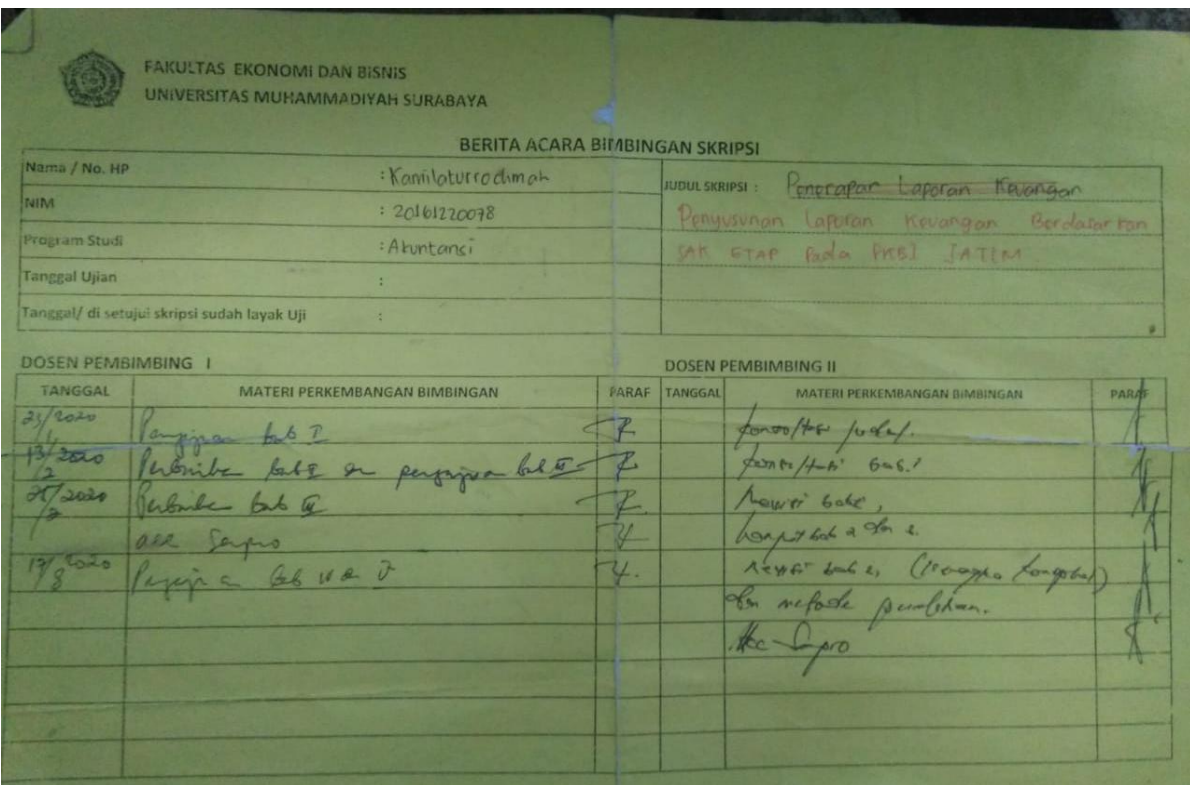 FAKULTAS EKONOMI DAN BISNIS
UNIVERSITAS MUHAMMADIYAH SURABAYA
BERITA ACARA BIMBINGAN SKRIPSI
Nama / No. HP : Kamilaturrodimah
NIM : 20161220078
Program Studi : Akuntansi
Tanggal Ujian :
Tanggal/ di setujui skripsi sudah layak Uji :
JUDUL SKRIPSI : Penerapan Laporan Keuangan
Penyusunan Laporan Keuangan Berdasarkan
SAK ETAP Pada PKBI JATIM
DOSEN PEMBIMBING I
TANGGAL MATERI PERKEMBANGAN BIMBINGAN PARAF
23/1 2020 Pengajuan bab I
13/2 2020 bab I pengajuan bab III
2020 bab III
acc Sempro
2020 bab
DOSEN PEMBIMBING II
TANGGAL MATERI PERKEMBANGAN BIMBINGAN PARAF
konsultasi judul.
konsultasi bab.1
Revisi bab 1,
bab 2
Revisi bab 2,
dan metode
Acc Sempro